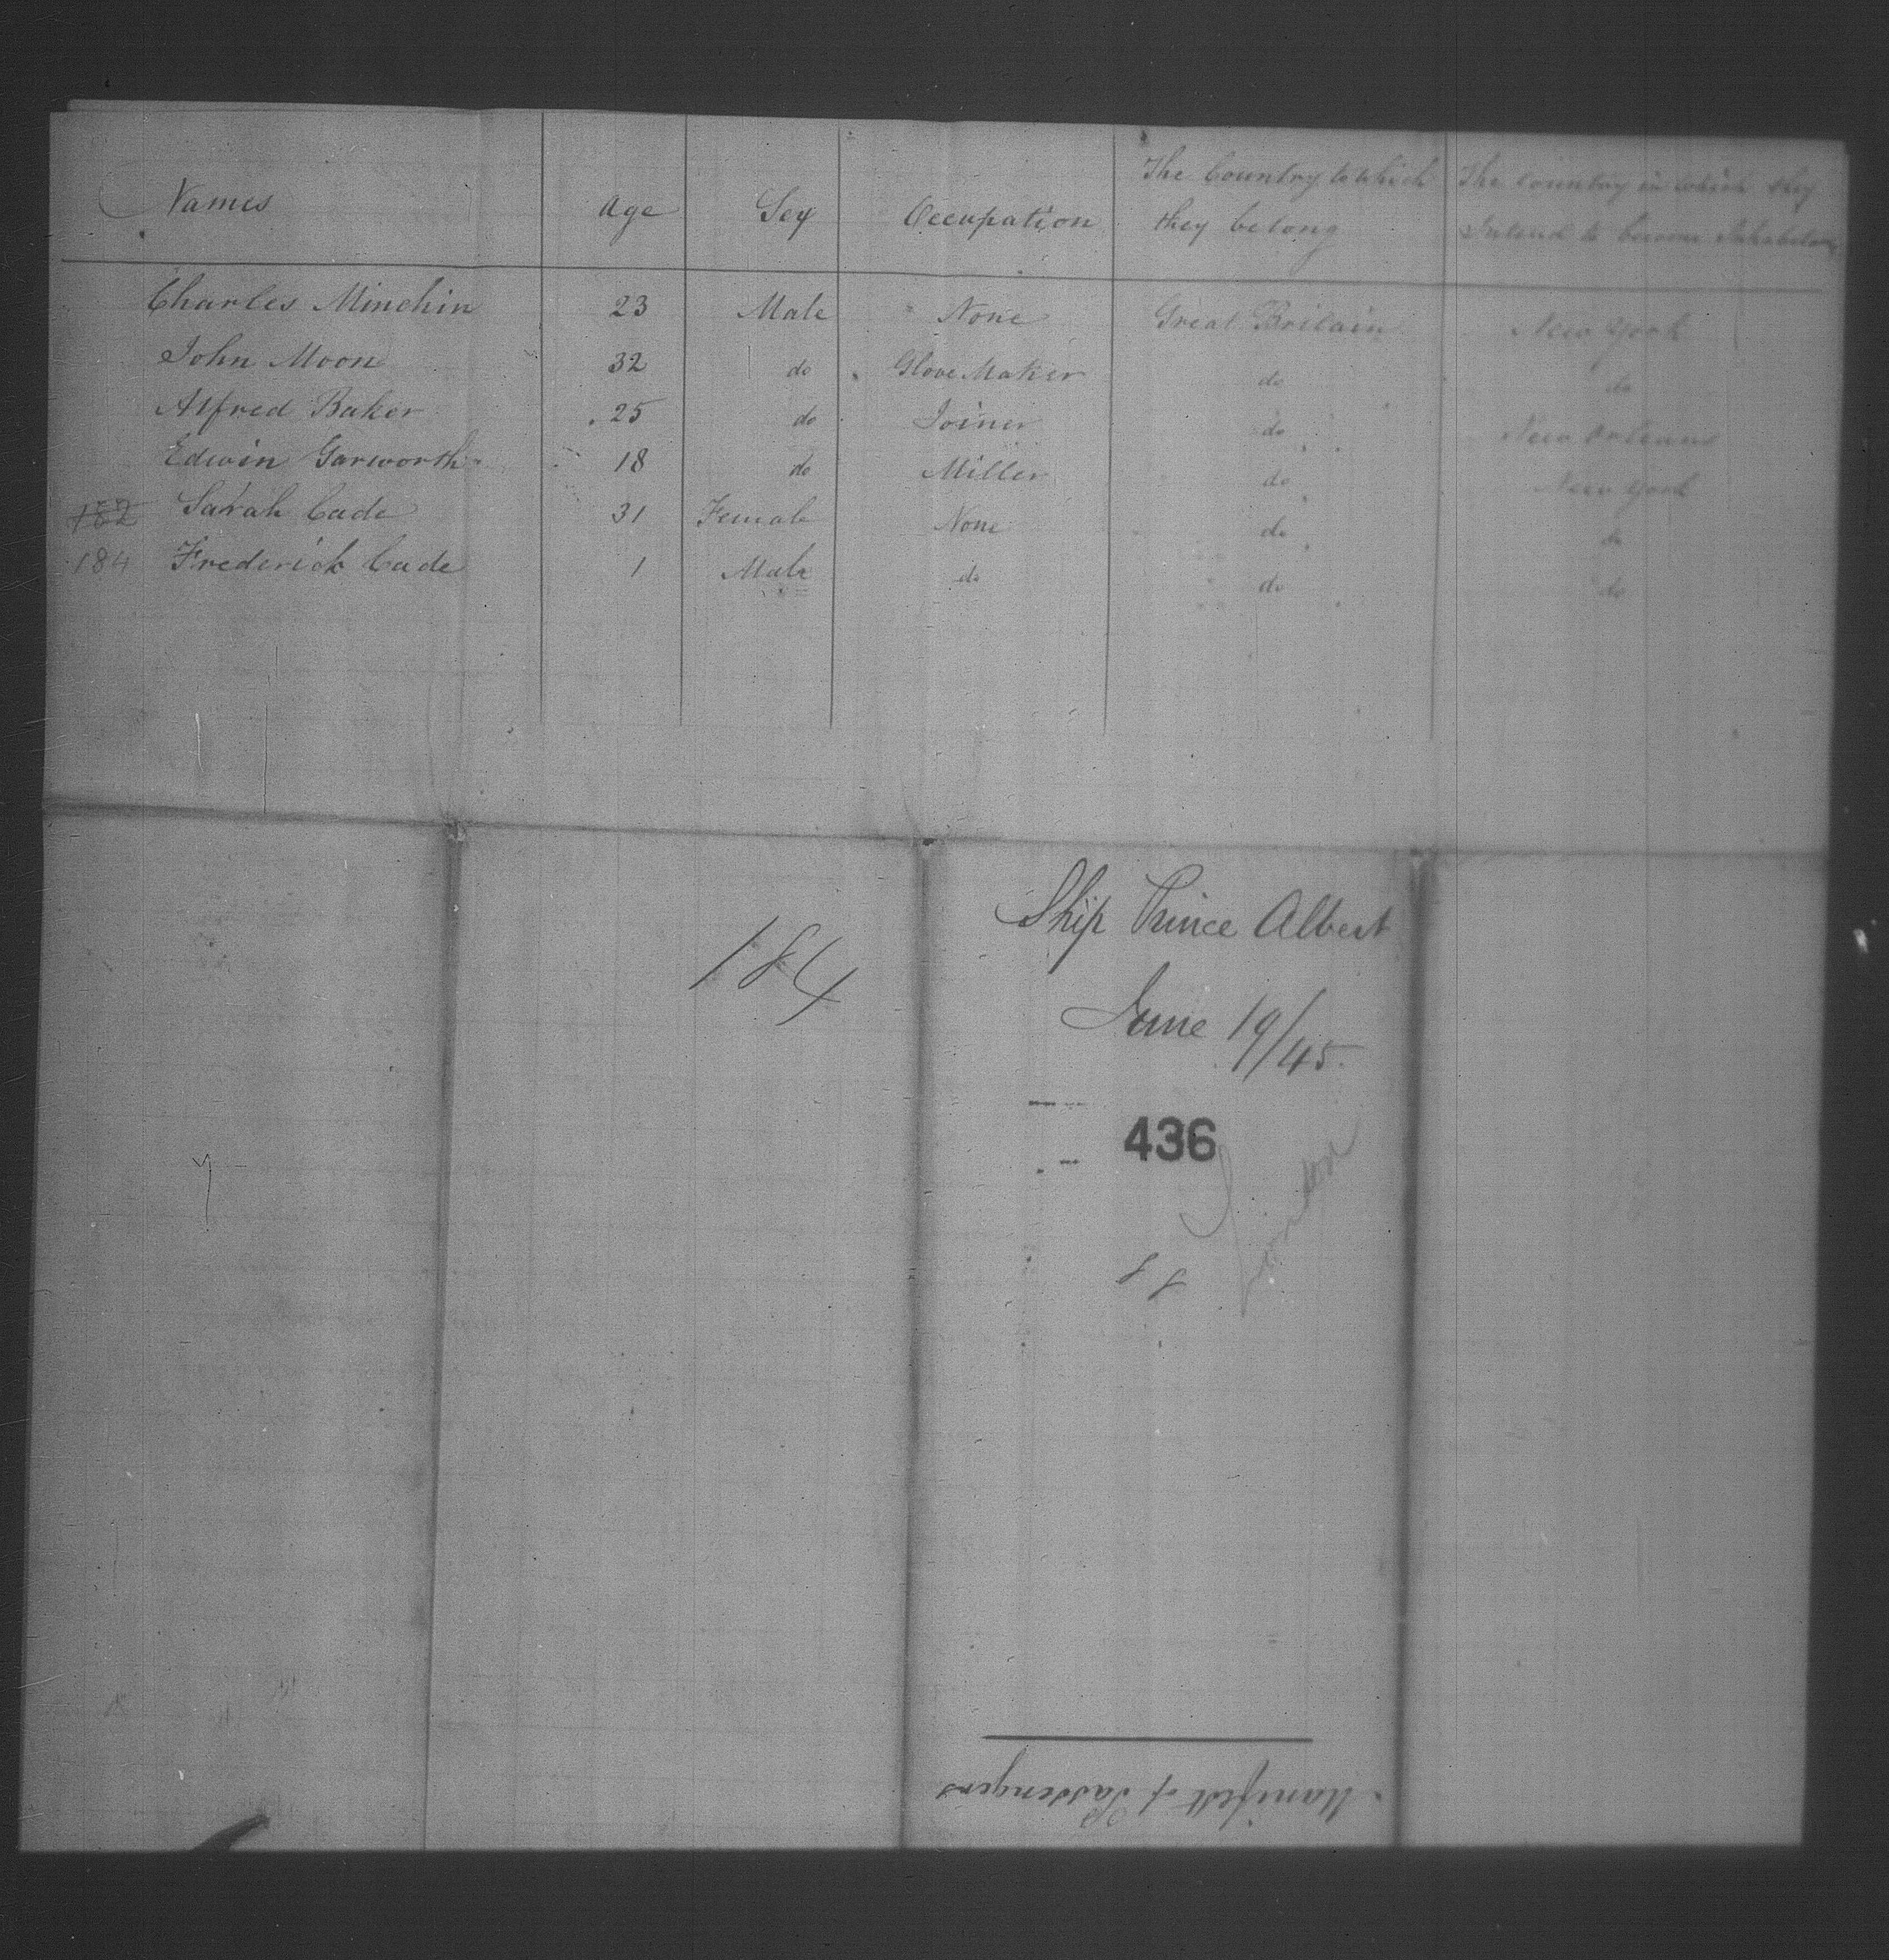 Names Age Sex Occupation The Country to which they belong The country in which they Intend to become Inhabitants
Charles Minchin 23 Male None Great Britain New York
John Moon 32 do Glove Maker do do
Alfred Baker 25 do Joiner do New Orleans
Edwin Garworth 18 do Miller do New York
182 Sarah Cade 31 Female None do do
184 Frederick Cade 1 Male do do do
184
Ship Prince Albert
June 19/45.
436
London
Manifest of Passengers